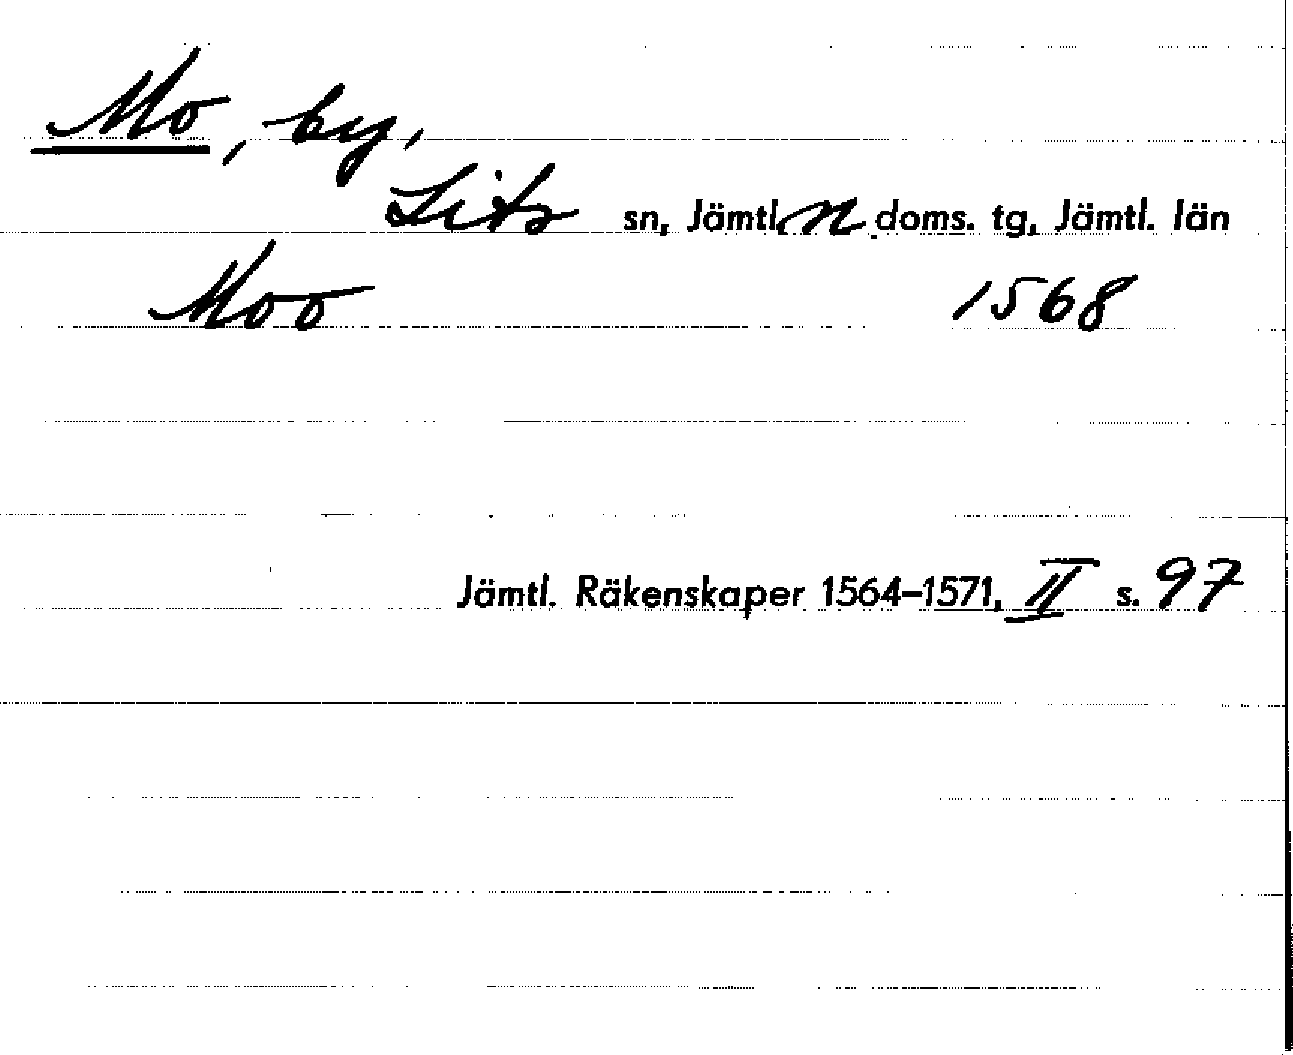 Mo, by,
Lits sn, Jämtl. n doms. tg, Jämtl. län
Moo 1568
Jämtl. Räkenskaper 1564–1571, II s. 97